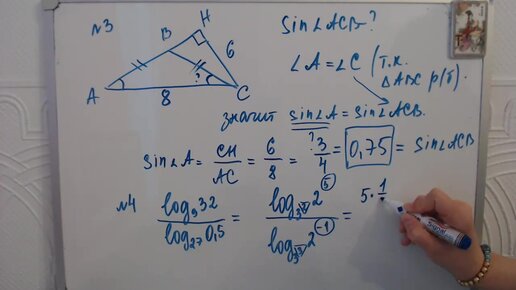 №3
H
B
6
?
A
8
C
sin∠ACB-?
∠A=∠C (т.к.
△ABC р/б).
значит sin∠A=sin∠ACB.
sin∠A= CH/AC = 6/8 = 3/4 = 0,75 = sin∠ACB
?
№4 log₉32/log₂₇0,5 = log_{3²}2⁵/log_{3³}2⁻¹ = 5·1